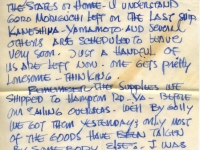 THE STATES OR HOME. I UNDERSTAND
GORO MORIGUCHI LEFT ON THE LAST SHIP.
KANESHIMA - YAMAMOTO AND SEVERAL
OTHERS ARE SCHEDULED TO LEAVE
VERY SOON. JUST A HANDFUL OF
US ARE LEFT NOW. ONE GETS PRETTY
LONESOME - THINKING.
REMEMBER THE SUPPLIES WE
SHIPPED TO HAMPTON RD. VA. BEFORE
OUR SAILING OVERSEAS. WELL BY GOLLY
WE GOT THEM YESTERDAY; ONLY MOST
OF THE GOODS HAVE BEEN TAKEN
BY SOMEBODY ELSE. I WAS